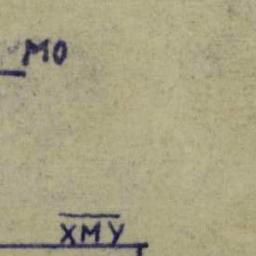 MO
XMY